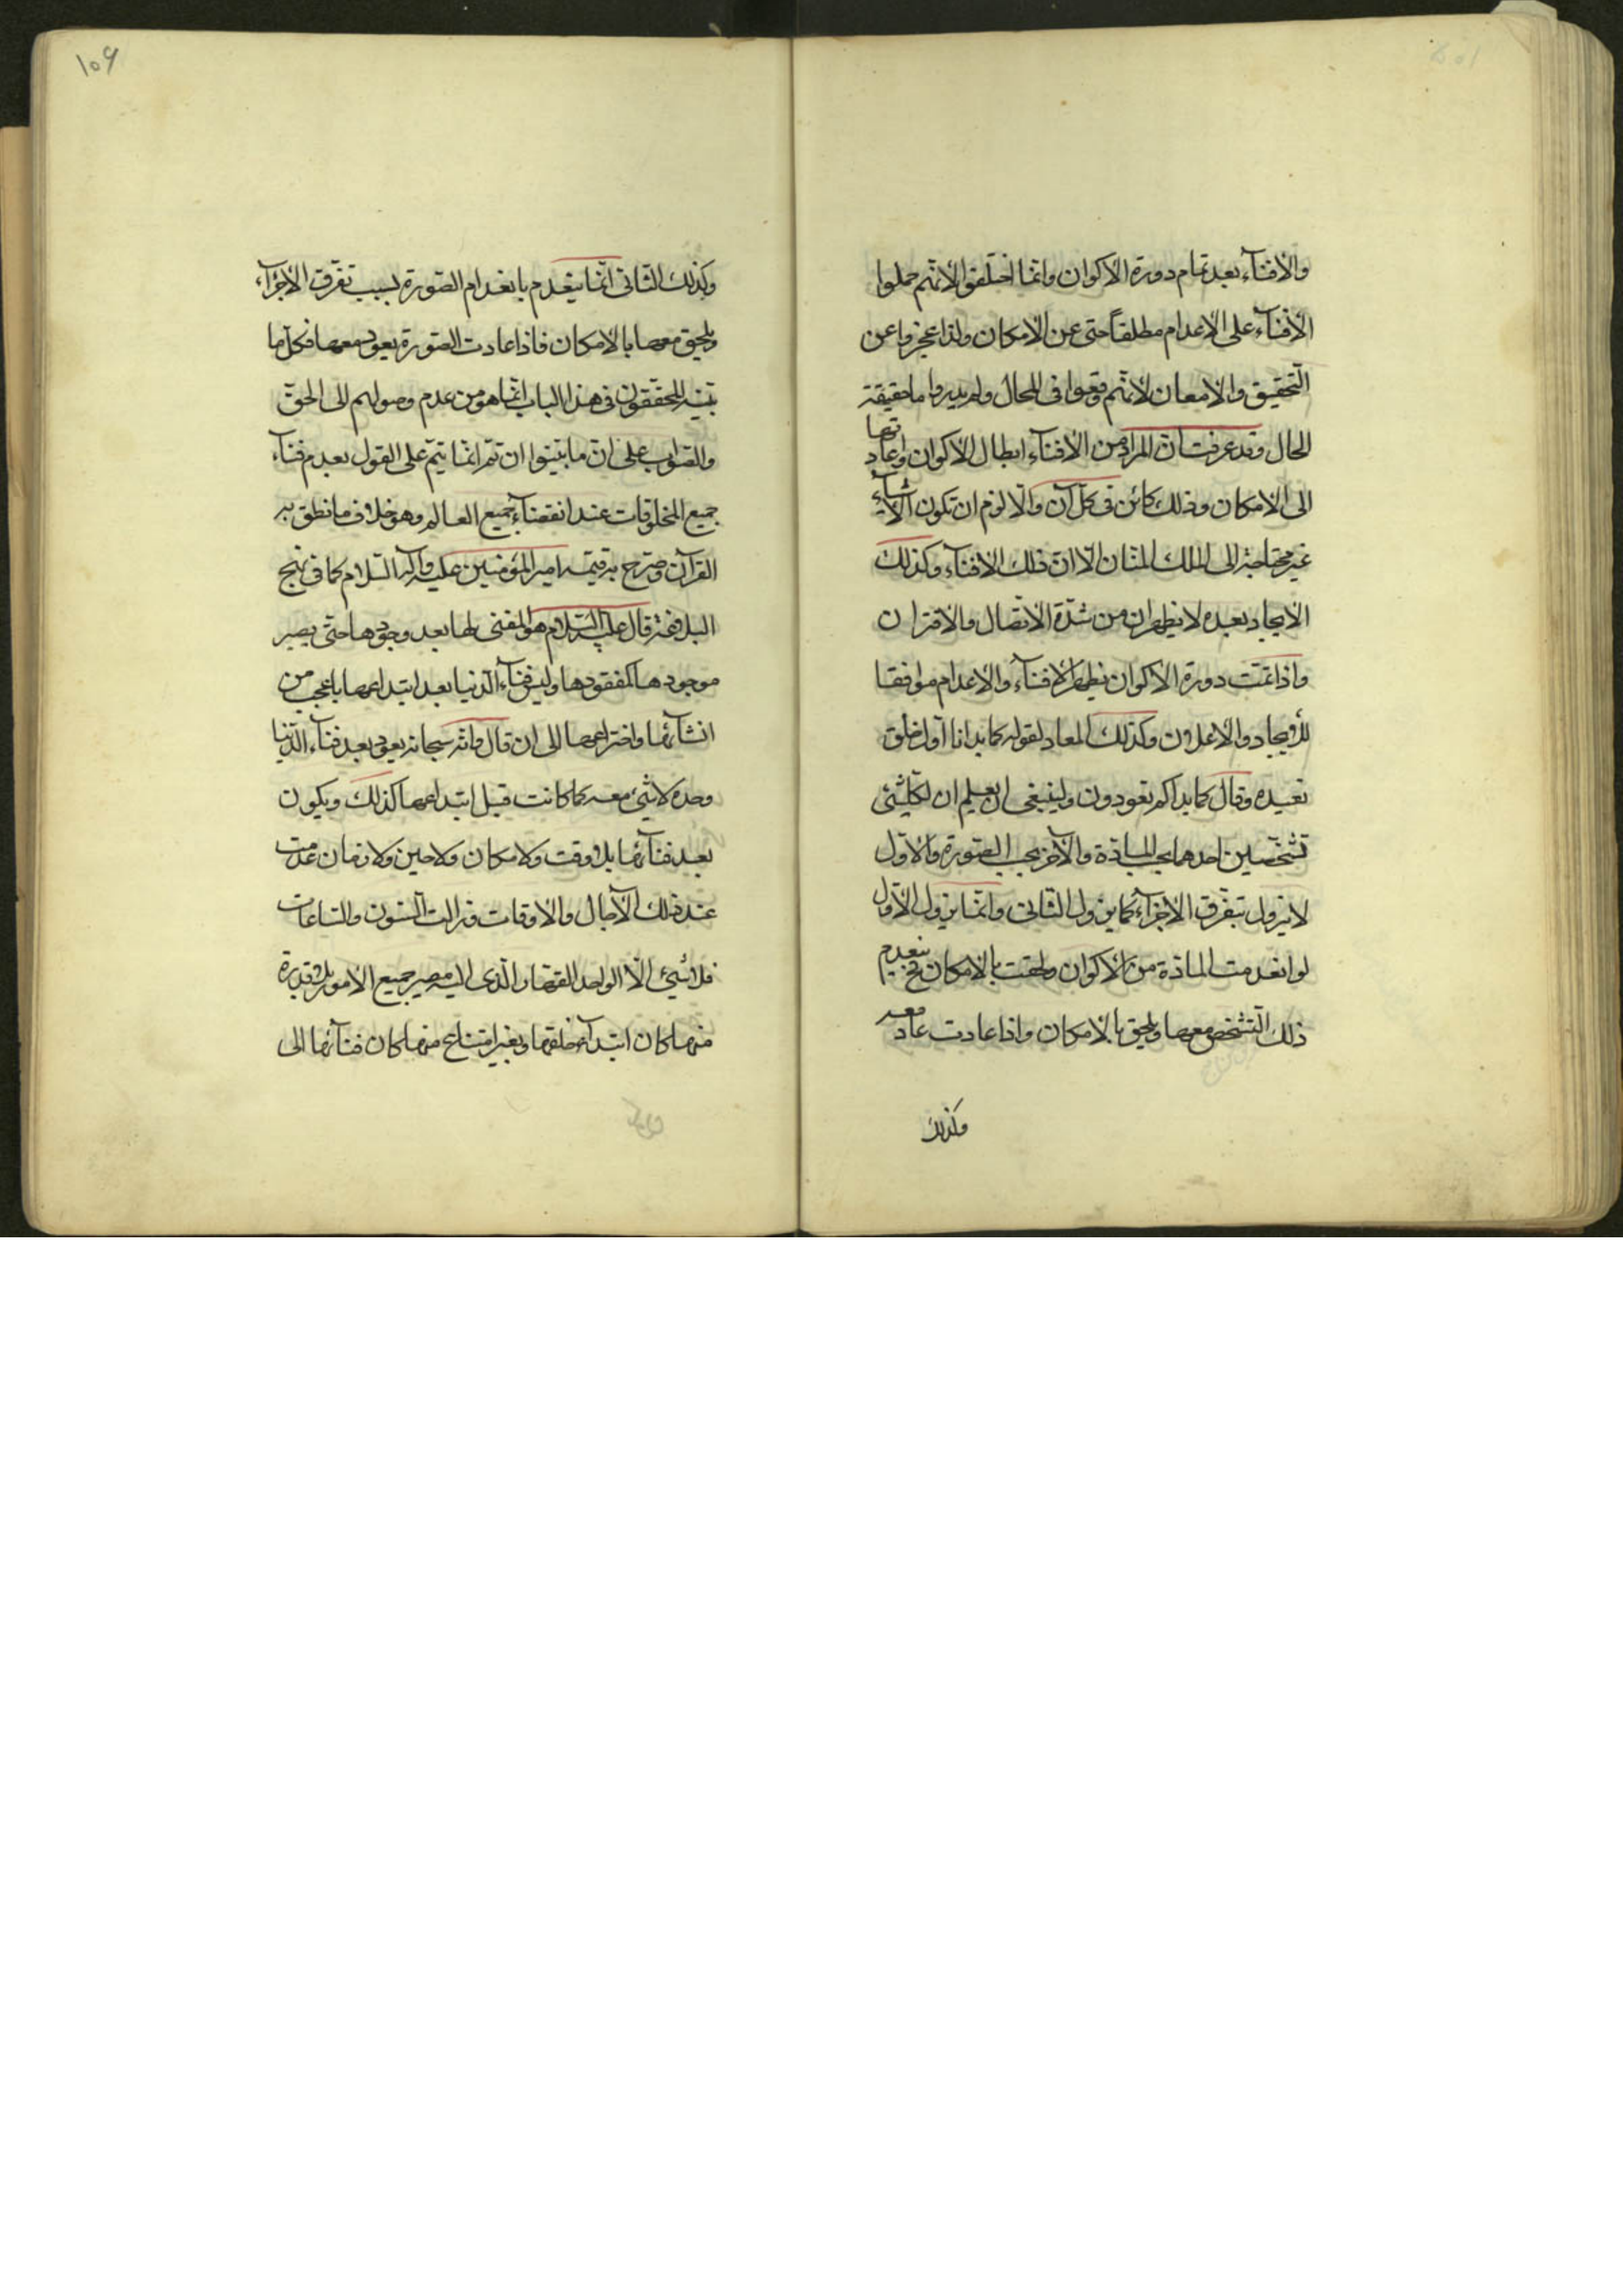 والافنآء بعد تمام دورة الاكوان وانما اختلفوا لانهم حملوا
الافنآء على الاعدام مطلقاً حتى عن الامكان ولذا عجزوا عن
التحقيق والامعان لانهم وقعوا فى المحال ولم يدروا ما حقيقة
الحال وقد عرفت ان المراد من الافنآء ابطال الاكوان واعادتها
الى الامكان وذلك كائن فى كل آن والا لزم ان تكون الاشيآء
غير محتاجة الى الملك المنان الا ان ذلك الافنآء وكذلك
الايجاد بعده لا يظهران من شدة الاتصال والاقتران
واذا تمت دورة الاكوان يظهر الافنآء والاعدام موافقا
للايجاد والاعلان وكذلك المعاد لقوله كما بدانا اول خلق
نعيده وقال كما بداكم تعودون ولينبغى ان يعلم ان لكل شئ
تشخصين احدهما بحسب المادة والآخر بحسب الصورة والاول
لا يزول بتفرق الاجزآء كما يزول الثانى وانما يزول الاول
لو انعدمت المادة من الاكوان ولحقت بالامكان فح ينعدم
ذلك التشخص معها ويلحق بالامكان واذا عادت عاد معه
وكذلك
١٠٩
وكذلك الثانى انما ينعدم بانعدام الصورة بسبب تفرق الاجزآء
ويلحق معها بالامكان فاذا عادت الصورة يعود معها فكل ما
بينه المحققون فى هذا الباب انما هو من عدم وصولهم الى الحق
والصواب على ان ما بينوا ان تم انما يتم على القول بعدم فنآء
جميع المخلوقات عند انقضآء جميع العالم وهو خلاف ما نطق به
القرآن وصرح به قيمه امير المؤمنين عليه وآله السلام كما فى نهج
البلاغة قال عليه السلام هو المفنى لها بعد وجودها حتى يصير
موجودها كمفقودها وليس فنآء الدنيا بعد ابتداعها باعجب من
انشآئها واختراعها الى ان قال وانه سبحانه يعود بعد فنآء الدنيا
وحده لا شئ معه كما كانت قبل ابتداعها كذلك ويكون
بعد فنآئها بلا وقت ولا مكان ولا حين ولا زمان عدمت
عند ذلك الآجال والاوقات وزالت السنون والساعات
فلا شئ الا الواحد القهار الذى اليه مصير جميع الامور بلا قدرة
منها كان ابتدآء خلقها وبغير امتناع منها كان فنآئها الى